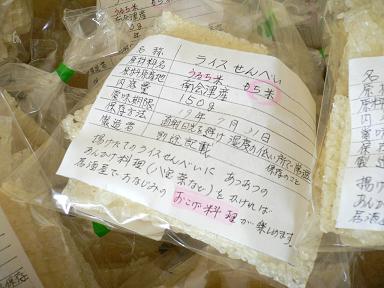 うるち米
南会津産
150g
名称 ライスせんべい
原材料名 うるち米 もち米
原料原産地 南会津産
内容量 150g
賞味期限 19年7月31日
保存方法 直射日光を避け湿度の低い所で常温保存のこと
製造者 別途記載
揚げたてのライスせんべいに あつあつの
あんかけ料理(八宝菜など)をかければ
居酒屋でおなじみの おこげ料理が楽しめます